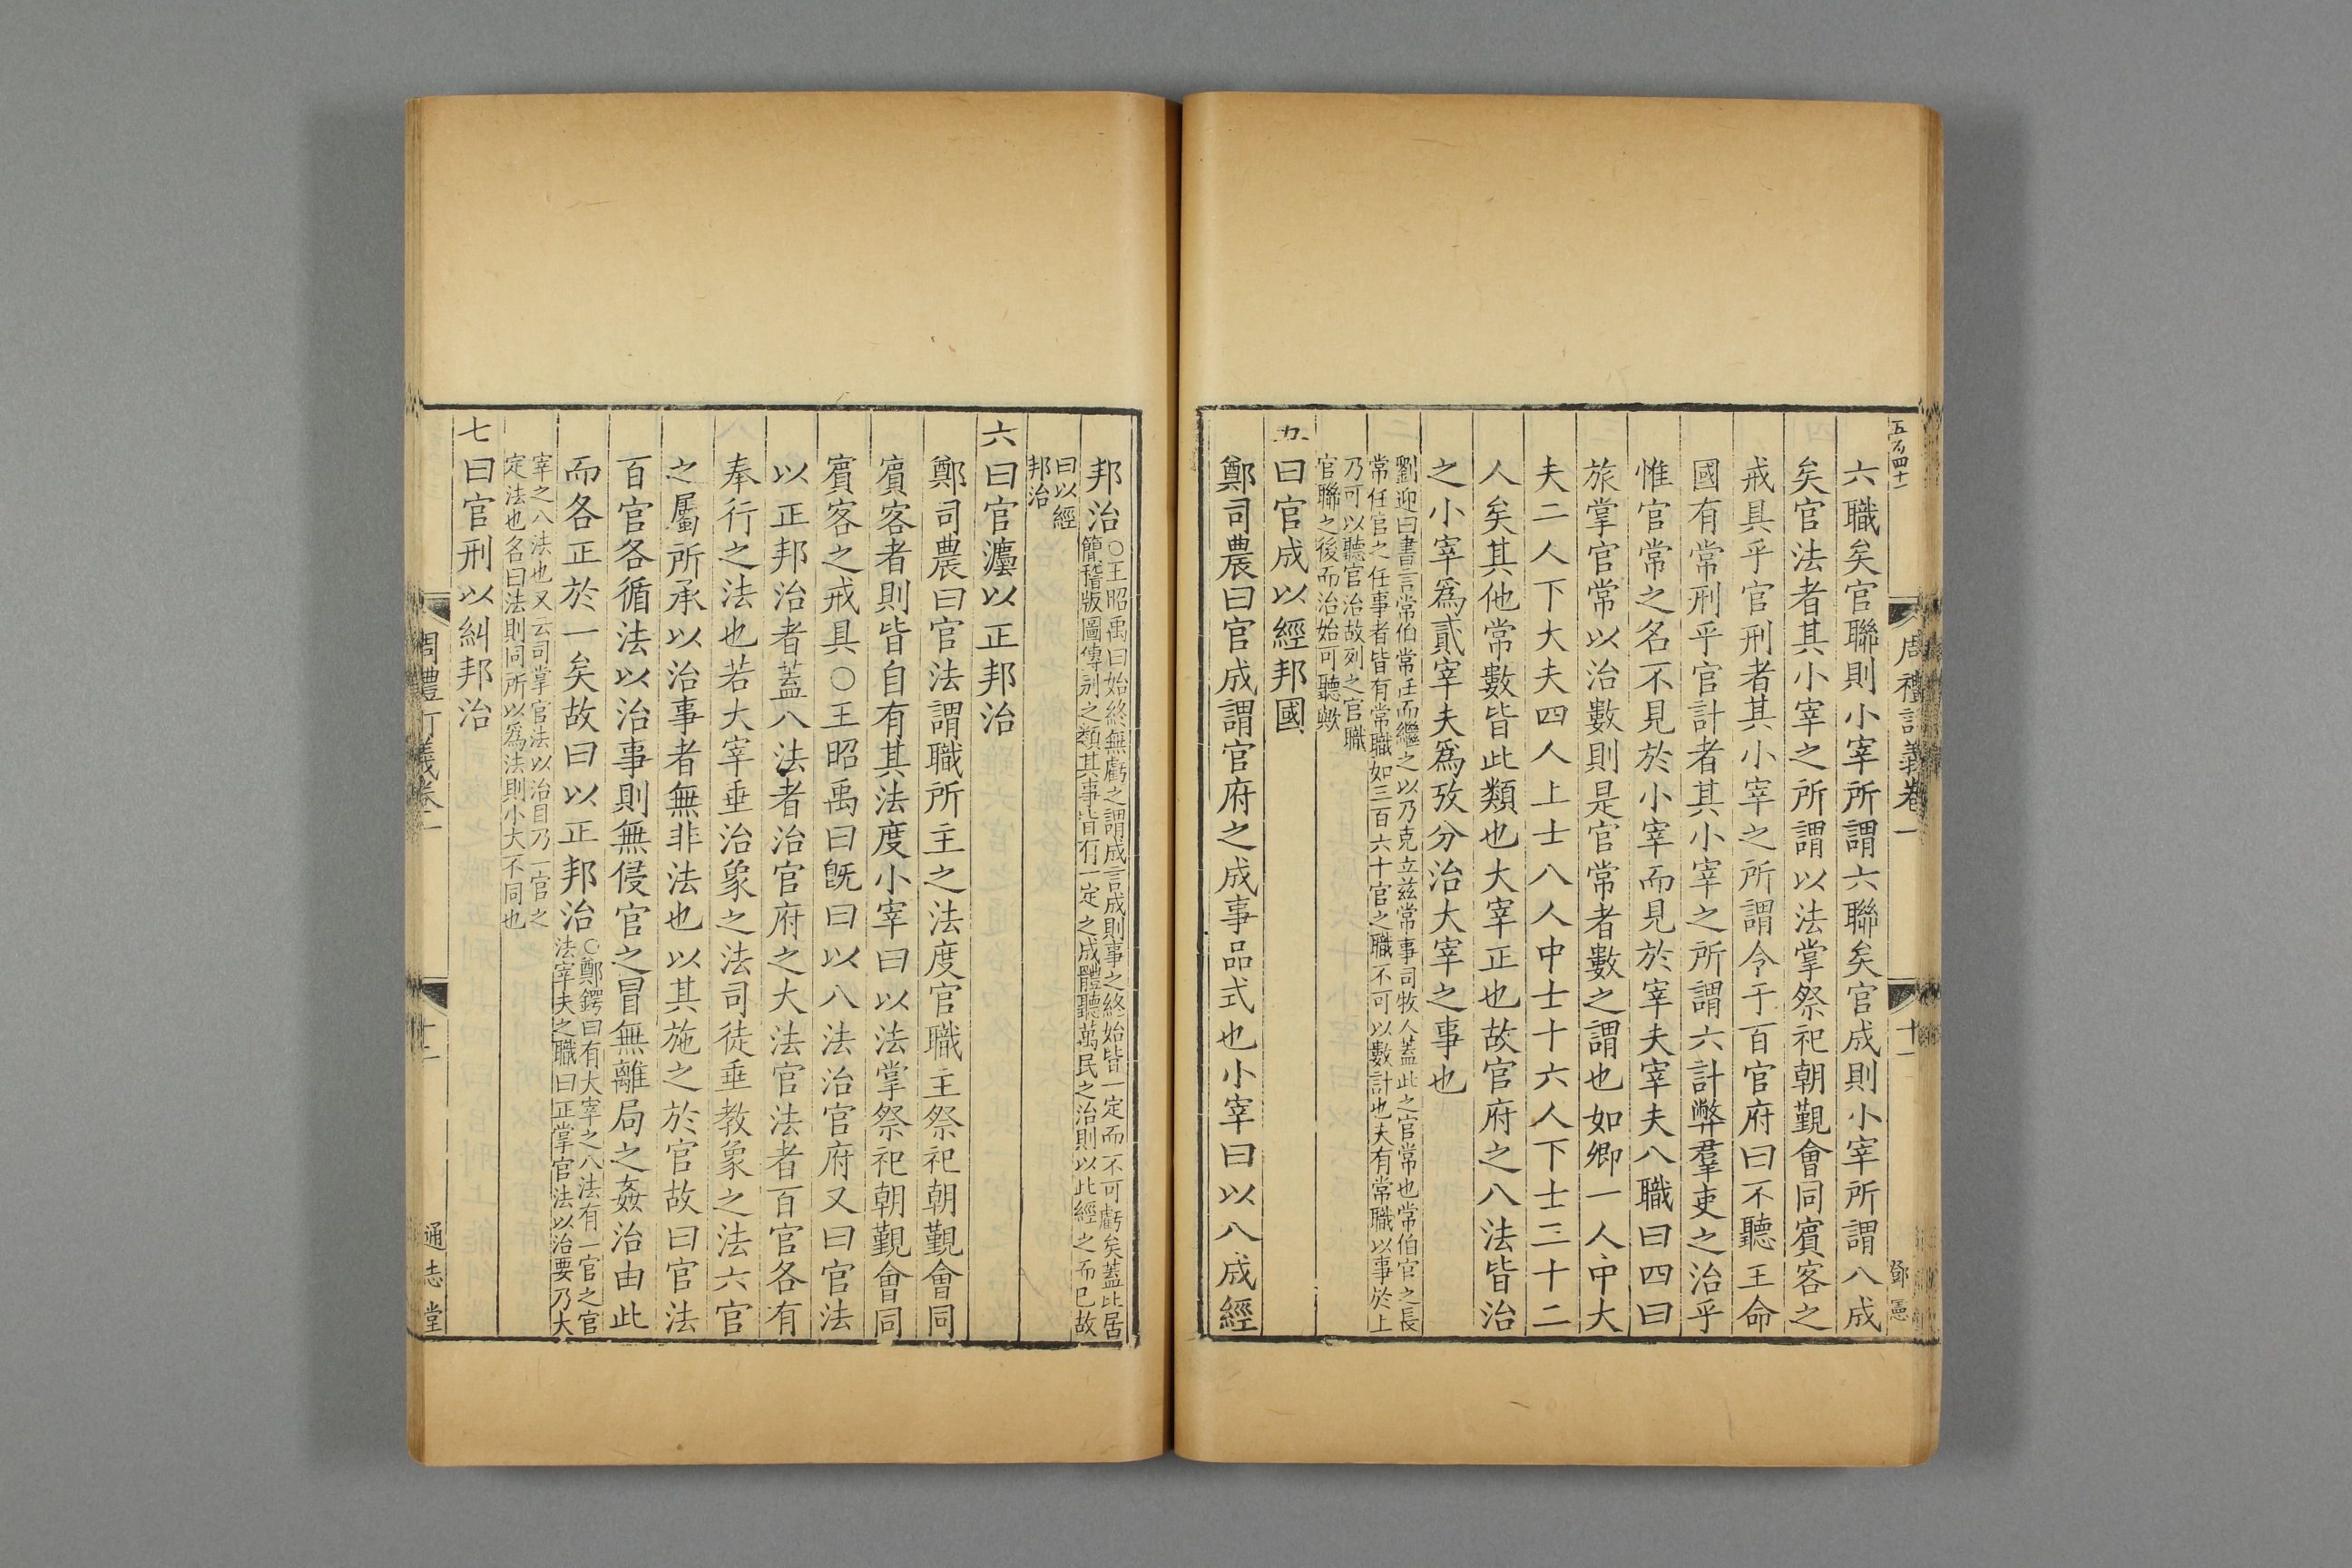 五百四十一
周禮訂義卷一
十一
鄧憲
六職矣官聯則小宰所謂六聯矣官成則小宰所謂八成
矣官法者其小宰之所謂以法掌祭祀朝覲會同賓客之
戒具乎官刑者其小宰之所謂令于百官府曰不聽王命
國有常刑乎官計者其小宰之所謂六計弊羣吏之治乎
惟官常之名不見於小宰而見於宰夫宰夫八職曰四曰
旅掌官常以治數則是官常者數之謂也如卿一人中大
夫二人下大夫四人上士八人中士十六人下士三十二
人矣其他常數皆此類也大宰正也故官府之八法皆治
之小宰爲貳宰夫爲攷分治大宰之事也
劉迎曰書言常伯常任而繼之以乃克立茲常事司牧人蓋此之官常也常伯官之長
常任官之任事者皆有常職如三百六十官之職不可以數計也夫有常職以事於上
乃可以聽官治故列之官職
官聯之後而治始可聽歟
五曰官成以經邦國
鄭司農曰官成謂官府之成事品式也小宰曰以八成經
邦治
○王昭禹曰始終無虧之謂成言成則事之終始皆一定而不可虧矣蓋比居
簡稽版圖傳别之類其事皆有一定之成體聽萬民之治則以此經之而已故
曰以經
邦治
六曰官灋以正邦治
鄭司農曰官法謂職所主之法度官職主祭祀朝覲會同
賓客者則皆自有其法度小宰曰以法掌祭祀朝覲會同
賓客之戒具○王昭禹曰旣曰以八法治官府又曰官法
以正邦治者蓋八法者治官府之大法官法者百官各有
奉行之法也若大宰垂治象之法司徒垂教象之法六官
之屬所承以治事者無非法也以其施之於官故曰官法
百官各循法以治事則無侵官之冒無離局之姦治由此
而各正於一矣故曰以正邦治
○鄭鍔曰有大宰之八法有一官之官
法宰夫之職曰正掌官法以治要乃大
宰之八法也又云司掌官法以治目乃一官之
定法也名曰法則同所以爲法則小大不同也
七曰官刑以糾邦治
周禮訂義卷一
十一
通志堂